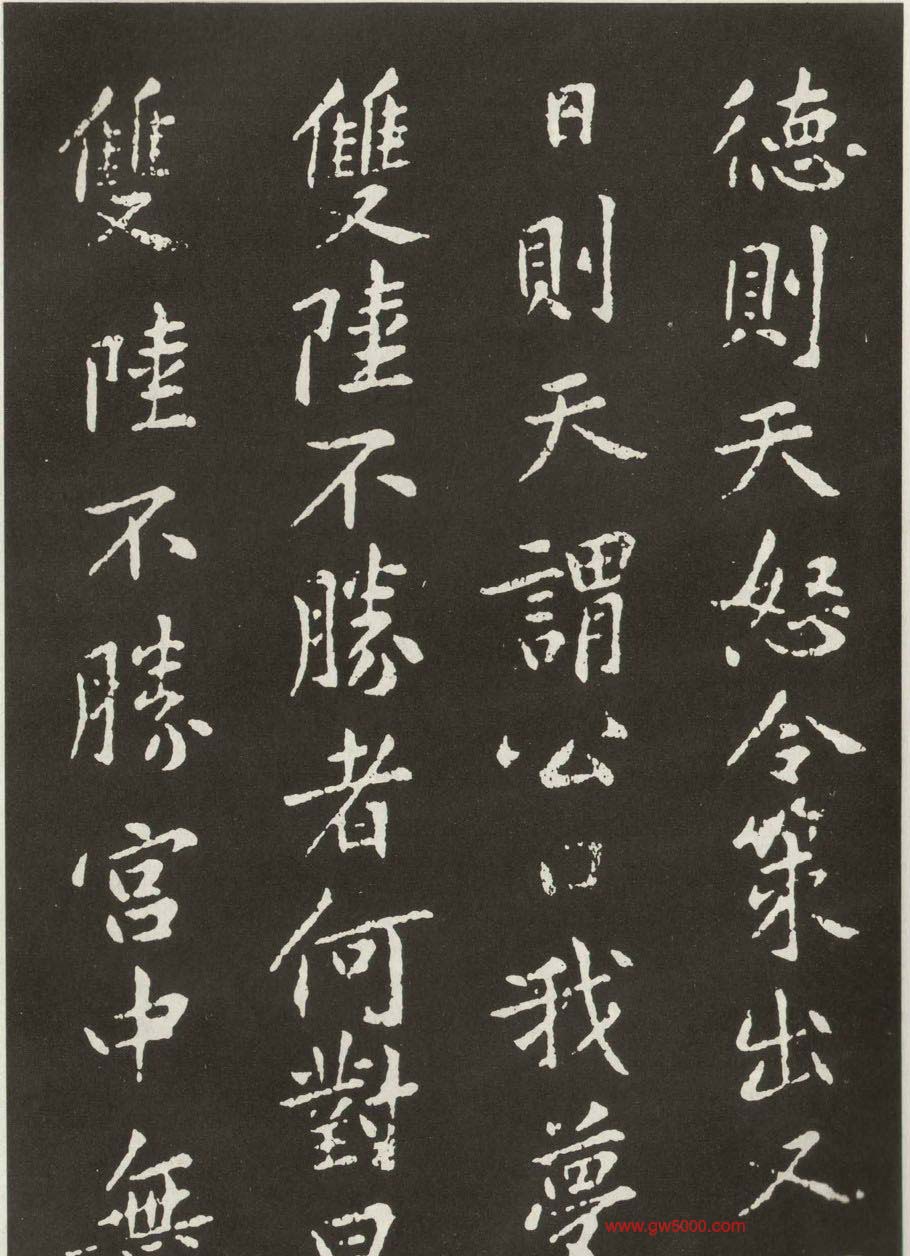 徳則天怒令策出又
日則天謂公曰我夢
雙陸不勝者何對曰
雙陸不勝宮中無
www.gw5000.com